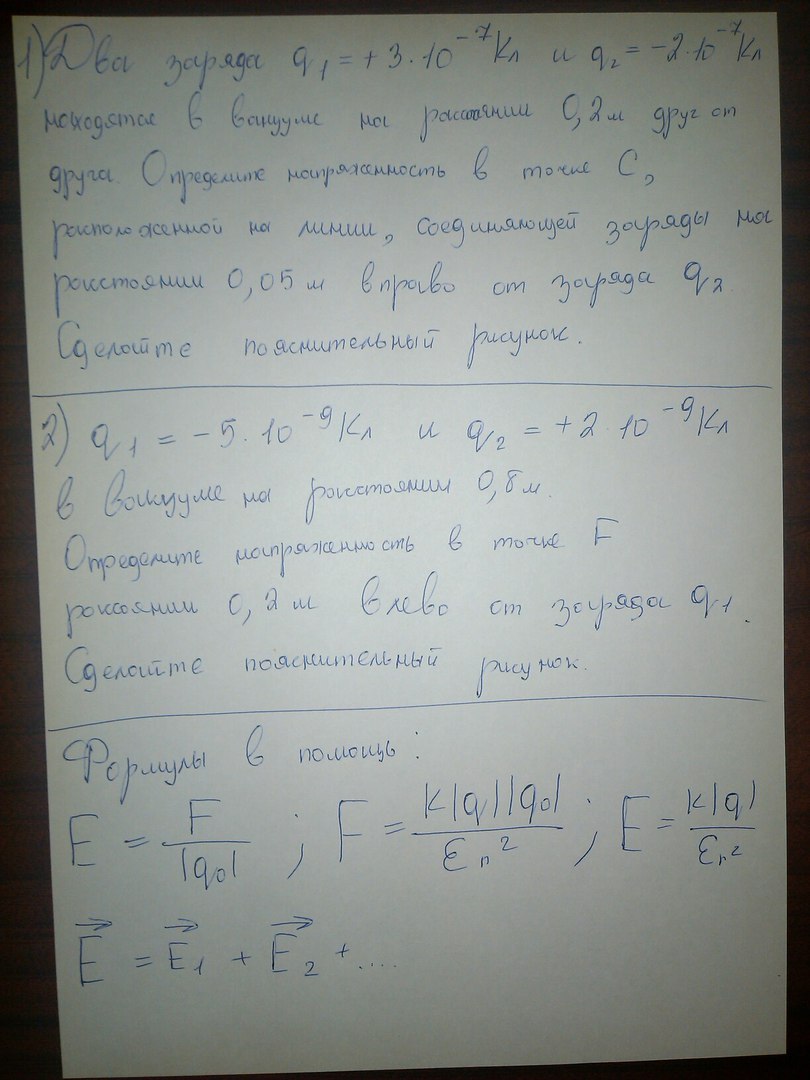 1) Два заряда q₁ = +3·10⁻⁷Кл и q₂ = -2·10⁻⁷Кл
находятся в вакууме на расстоянии 0,2м друг от
друга. Определите напряженность в точке С,
расположенной на линии, соединяющей заряды на
расстоянии 0,05м вправо от заряда q₂.
Сделайте пояснительный рисунок.
2) q₁ = -5·10⁻⁹Кл и q₂ = +2·10⁻⁹Кл
в вакууме на расстоянии 0,8м.
Определите напряженность в точке F
рассоянии 0,2м влево от заряда q₁.
Сделайте пояснительный рисунок.
Формулы в помощь:
E = F/|q₀| ; F = k|q||q₀|/εr² ; E = k|q|/εr²
E⃗ = E⃗₁ + E⃗₂ + ....